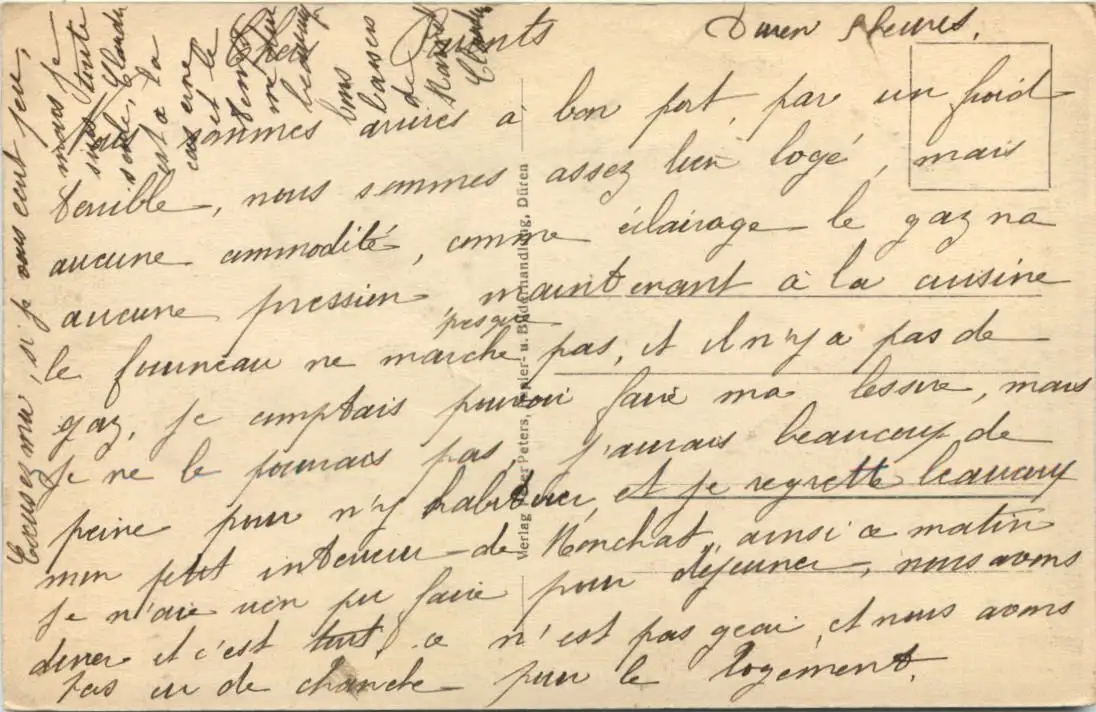 Duren 5 heures.
Chers Parents
sommes arrivés à bon port, par un froid
terrible, nous sommes assez bien logé, mais
aucune commodité, comme éclairage le gaz na
aucune pression, maintenant à la cuisine
le fourneau ne marche presque pas, et il n'y a pas de
gaz, je comptais pouvoir faire ma lessive, mais
je ne le pourrais pas, j'aurais beaucoup de
peine pour m'y habituer, et je regrette beaucoup
mon petit interieur de Monchat, ainsi ce matin
je n'aie rien pu faire pour déjeuner, nous avons
diner et c'est tout, ce n'est pas geai, et nous avons
pas eu de chanche pour le logement.
Excusez moi, si je vous ecrit peu,
mais je
suis toute
seule, Claude
est à la
caserne
et le
temps
me dure
beaucoup
bons
baisers
de
Claude
Verlag Peter Peters, Papier- u. Bilderhandlung, Düren